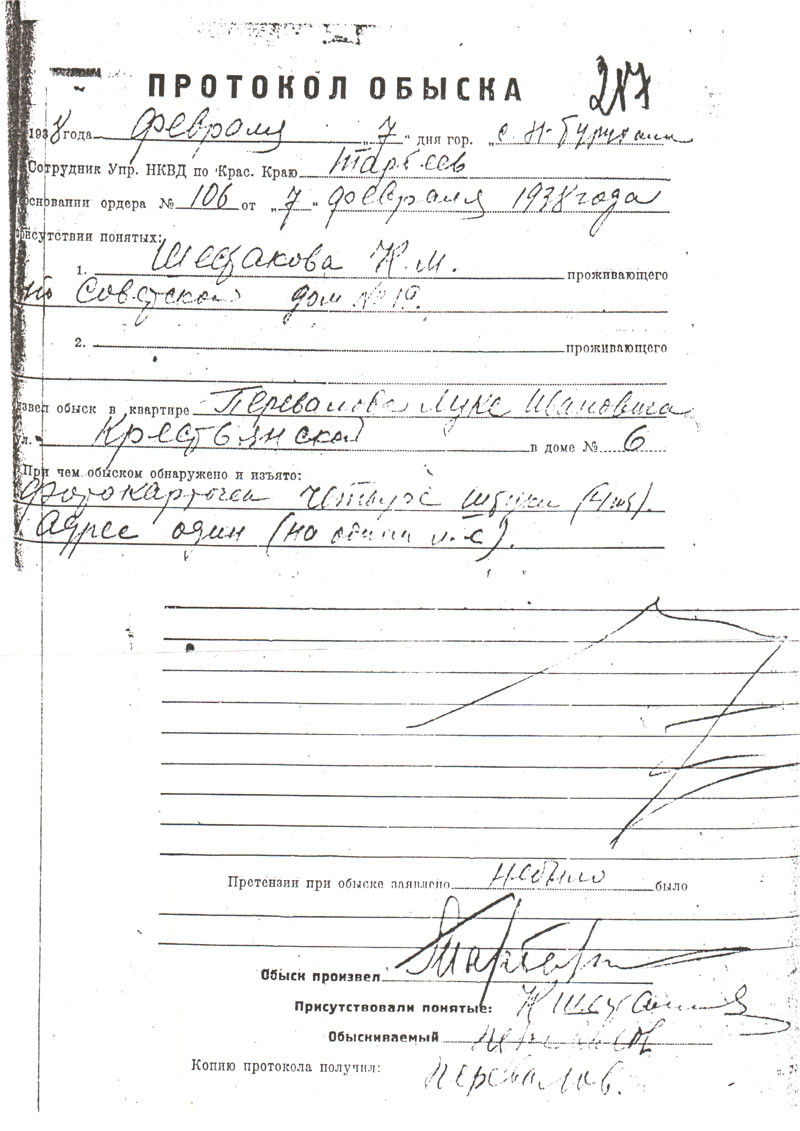 ПРОТОКОЛ ОБЫСКА 287
1938 года февраля „7“ дня гор. „с. Н-Туруханск
Сотрудник Упр. НКВД по Крас. Краю Тарбеев
основании ордера № 106 от „7“ февраля 1938 года
присутствии понятых:
1. Шестакова К. М. проживающего
по Советской дом № 19.
2. проживающего
извел обыск в квартире Перевалова Луке Ивановича
ул. Крестьянской в доме № 6
При чем обыском обнаружено и изъято:
Фотокарточек четыре штуки (4 шт).
Адрес один (на одном л-с).
Претензии при обыске заявлено небыло было
Обыск произвел Тарбеев
Присутствовали понятые: К Шестакова
Обыскиваемый
Копию протокола получил: Перевалов.